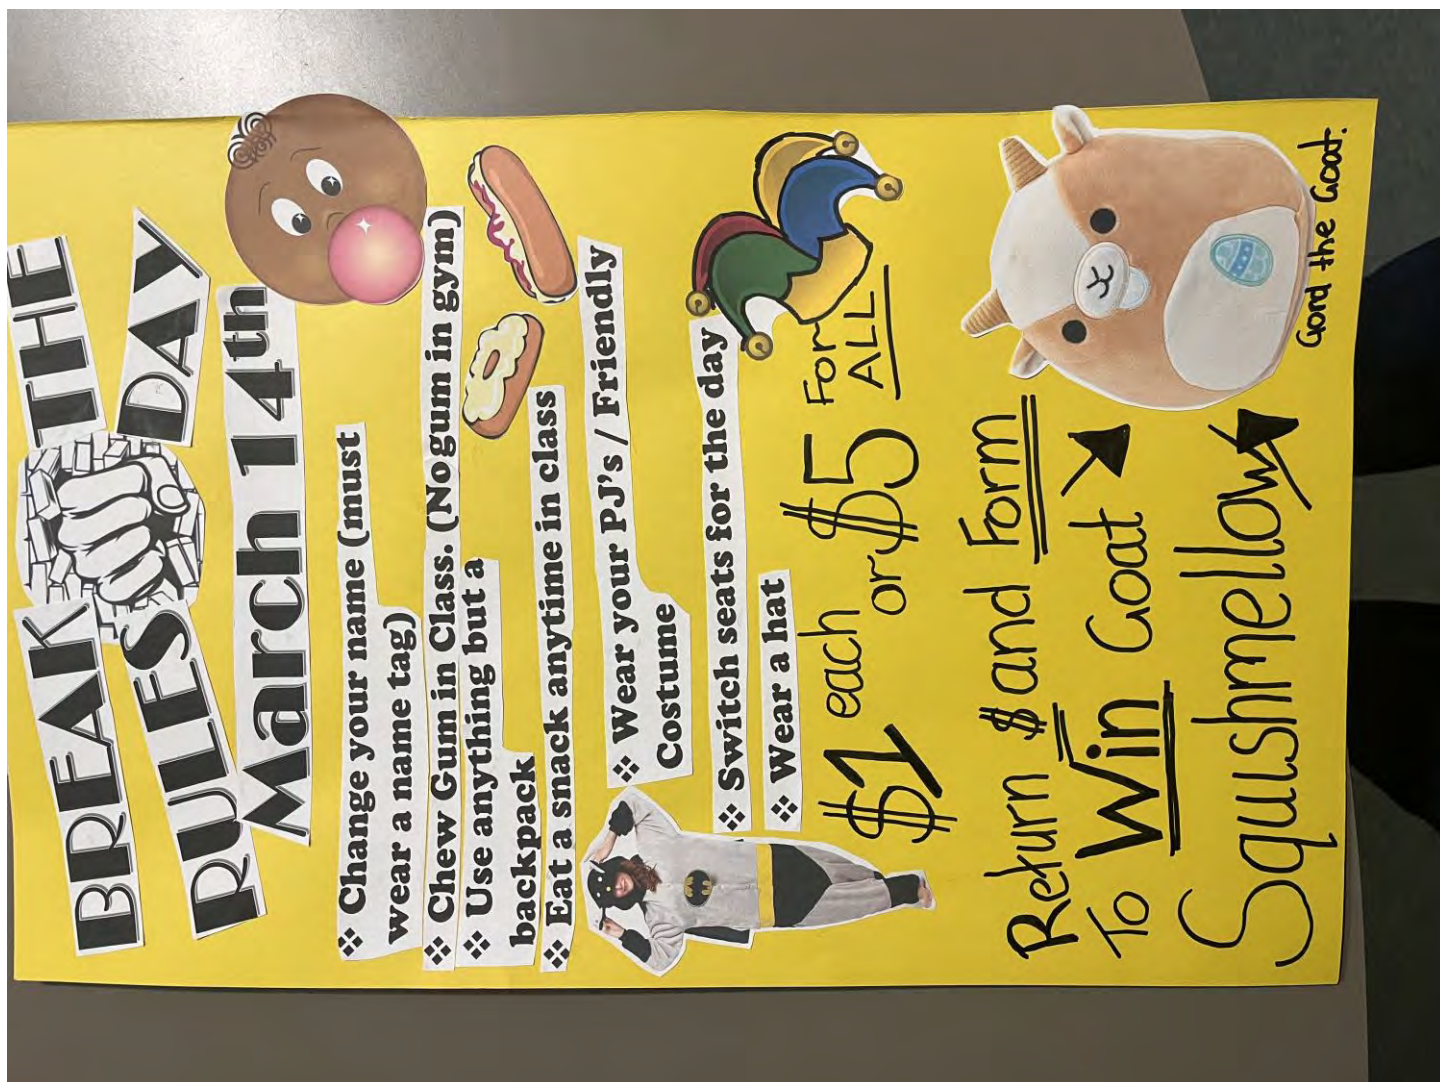 BREAK THE
RULES DAY
March 14th
❖ Change your name (must
wear a name tag)
❖ Chew Gum in Class. (Nogum in gym)
❖ Use anything but a
backpack
❖ Eat a snack anytime in class
❖ Wear your PJ's / Friendly
Costume
❖ Switch seats for the day
❖ Wear a hat
$1 each or $5 For ALL
Return $ and Form
To Win Goat
Squshmellow
Gord the Goat.